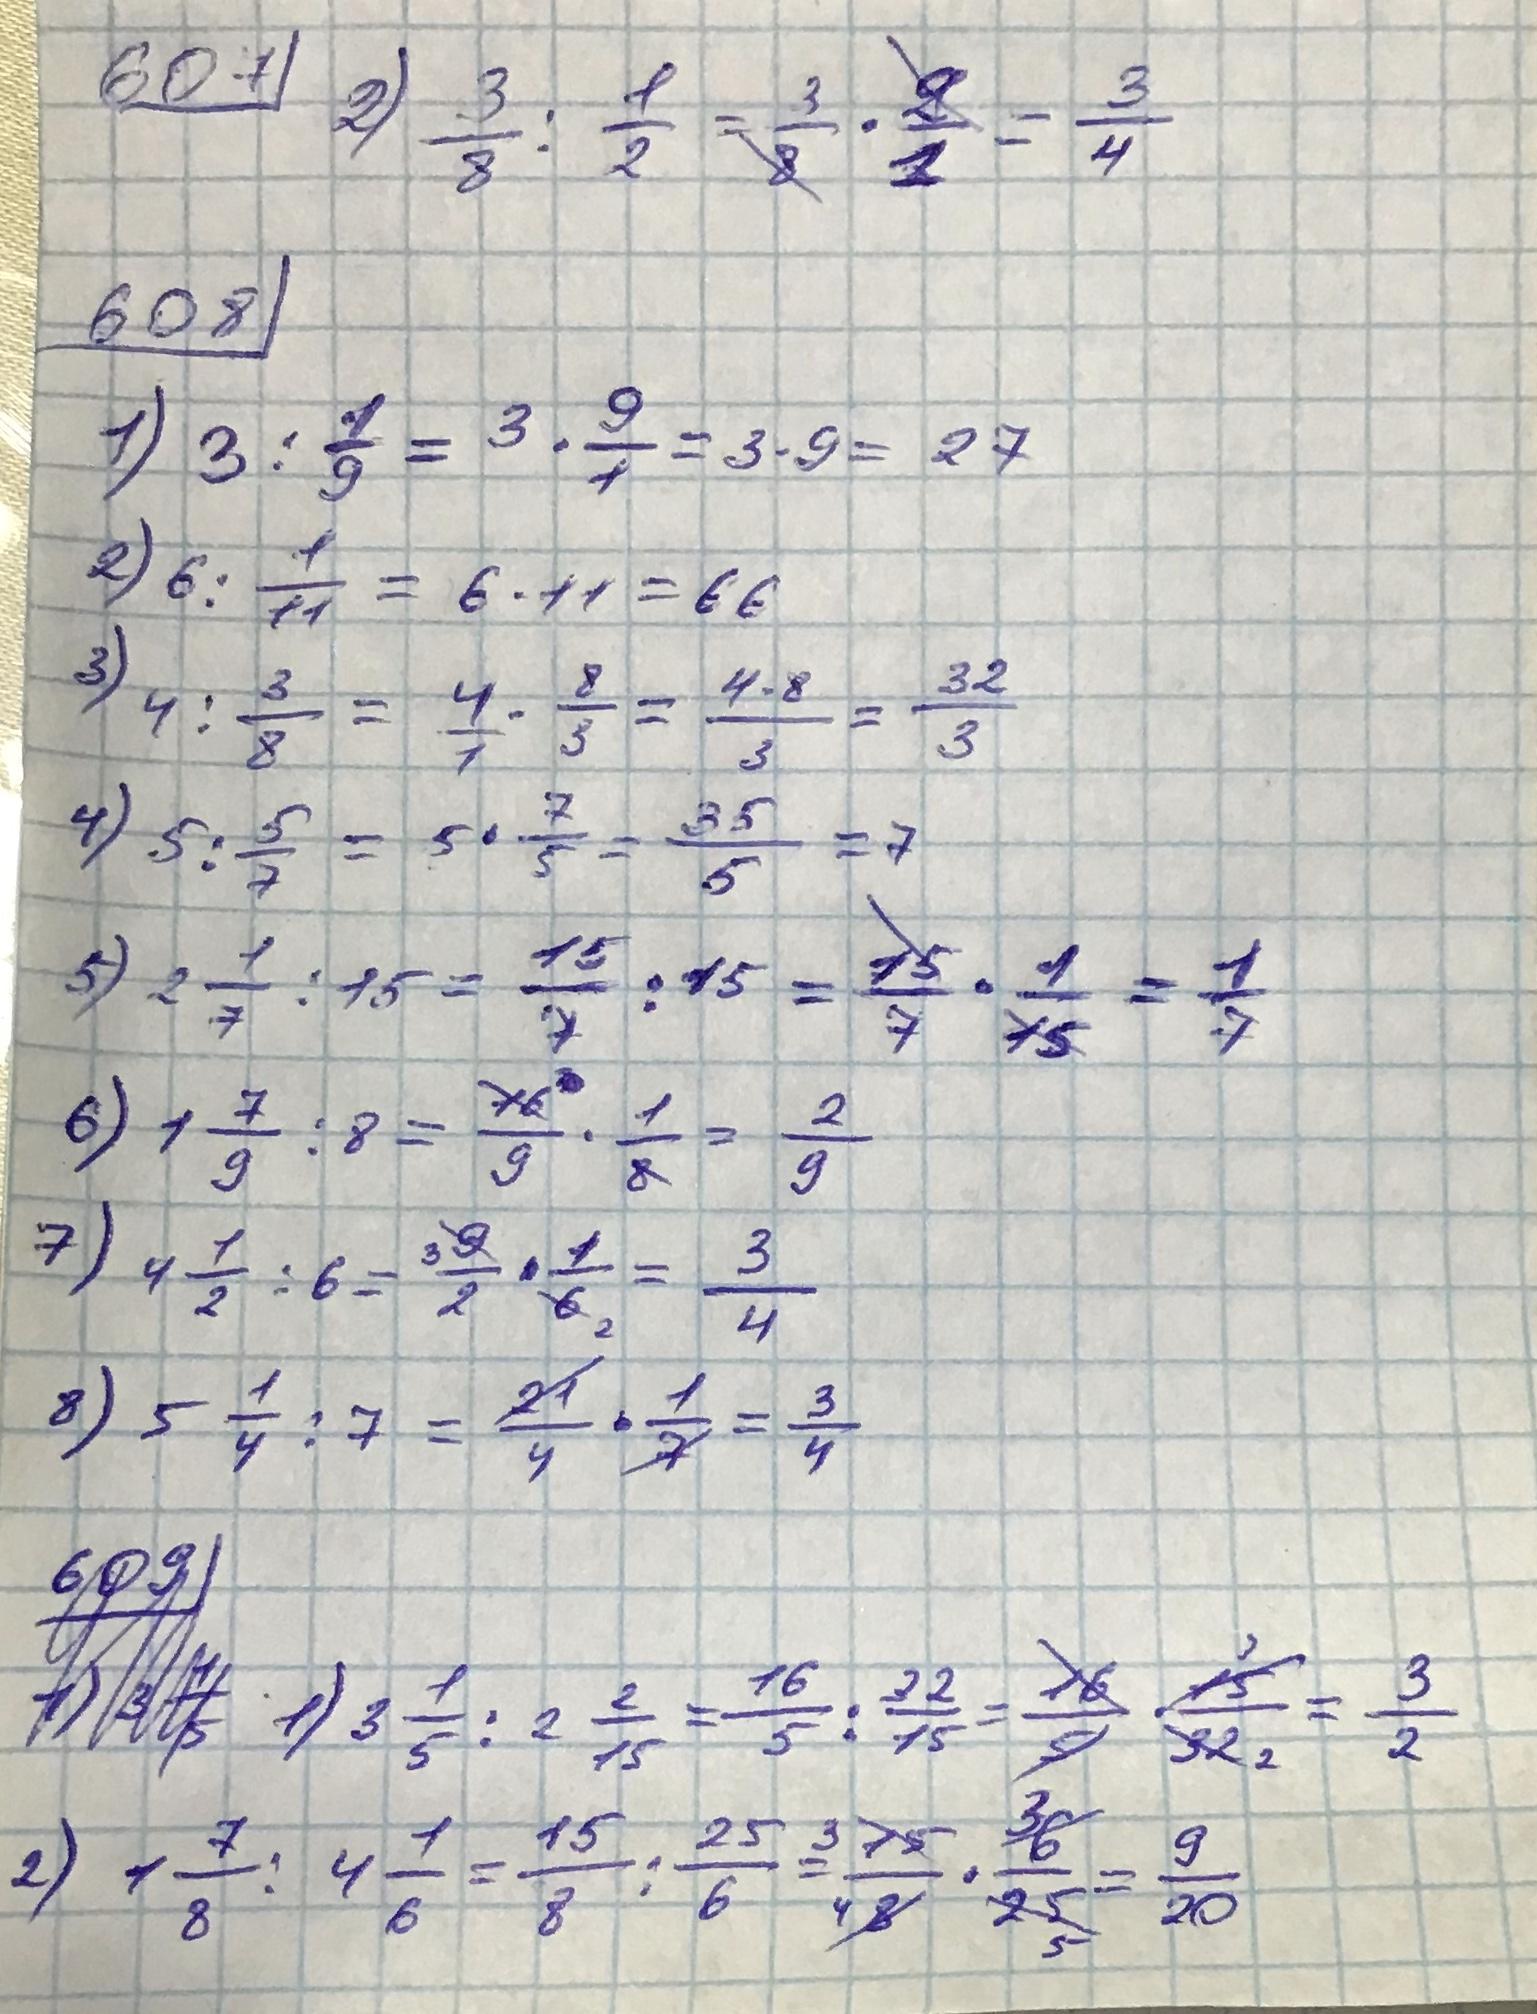 607 2) 3/8 : 1/2 = 3/8 · 2/1 = 3/4
608
1) 3 : 1/9 = 3 · 9/1 = 3·9 = 27
2) 6 : 1/11 = 6 · 11 = 66
3) 4 : 3/8 = 4/1 · 8/3 = 4·8/3 = 32/3
4) 5 : 5/7 = 5 · 7/5 = 35/5 = 7
5) 2 1/7 : 15 = 15/7 : 15 = 15/7 · 1/15 = 1/7
6) 1 7/9 : 8 = 16/9 · 1/8 = 2/9
7) 4 1/2 : 6 = 3 9/2 · 1/6 2 = 3/4
8) 5 1/4 : 7 = 21/4 · 1/7 = 3/4
609
1) 3 1/5 1) 3 1/5 : 2 2/15 = 16/5 : 32/15 = 16/5 · 15 3/32 2 = 3/2
2) 1 7/8 : 4 1/6 = 15/8 : 25/6 = 3 15/4 8 · 3 6/25 5 = 9/20